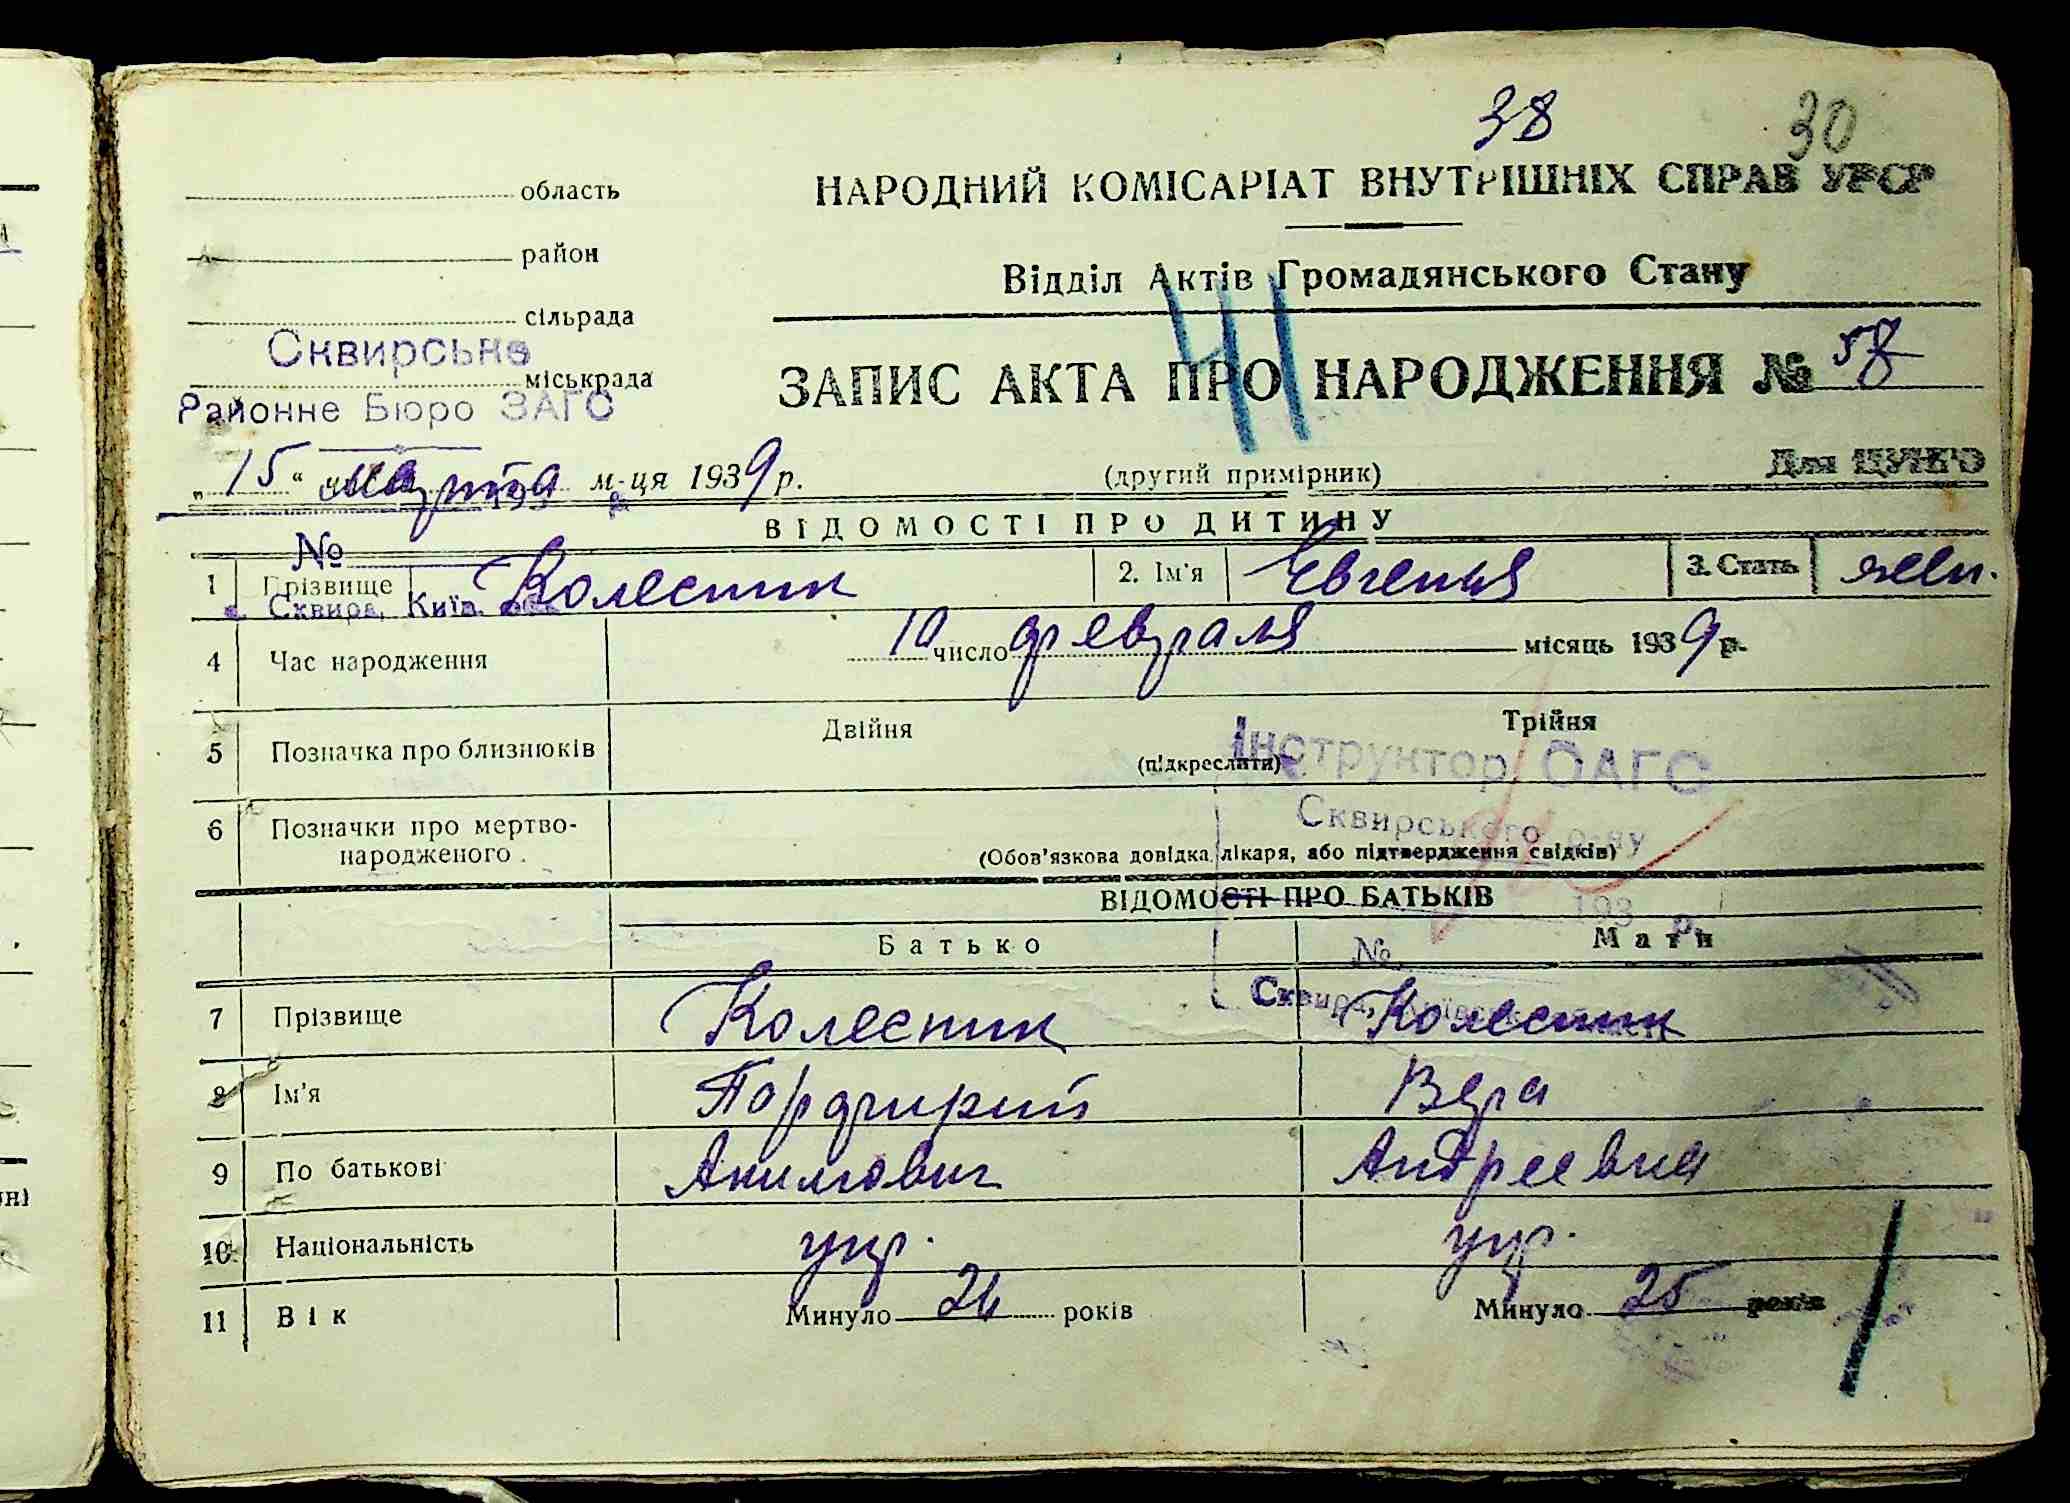 38 30
область
НАРОДНИЙ КОМІСАРІАТ ВНУТРІШНІХ СПРАВ УРСР
район
Відділ Актів Громадянського Стану
сільрада
41
Сквирське
міськрада
Районне Бюро ЗАГС
ЗАПИС АКТА ПРО НАРОДЖЕННЯ № 58
„15“ марта м-ця 1939 р.
(другий примірник)
Для ЦУНГО
ВІДОМОСТІ ПРО ДИТИНУ
№
1 Прізвище Колесник 2. Ім'я Евгения 3. Стать жен.
Сквира, Київ.
4 Час народження 10 число февраля місяць 1939 р.
5 Позначка про близнюків Двійня Трійня
(підкреслити)
Інструктор ОАГС
Сквирського р-ну
6 Позначки про мертво-
народженого
(Обов'язкова довідка лікаря, або підтвердження свідків)
ВІДОМОСТІ ПРО БАТЬКІВ
193 р.
Батько Мати
№
Сквира,
7 Прізвище Колесник Колесник
8 Ім'я Порфирий Вера
9 По батькові Акимович Андреевна
10 Національність укр. укр.
11 Вік Минуло 24 років Минуло 25 років